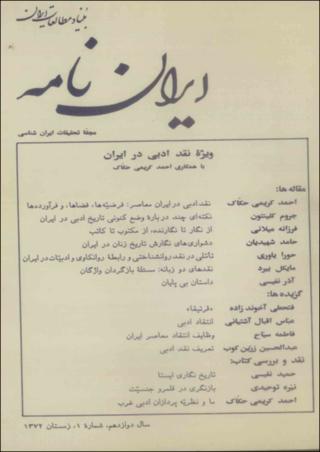 بنیاد مطالعات ایران
ایران نامه
مجلهٔ تحقیقات ایران شناسی
ویژهٔ نقد ادبی در ایران
با همکاری احمد کریمی حکّاک
مقاله ها:
احمد کریمی حکّاک نقد ادبی در ایران معاصر: فرضیّه‌ها، فضاها، و فرآورده‌ها
جروم کلینتون نکته‌ای چند دربارهٔ وضع کنونی تاریخ ادبی در ایران
فرزانه میلانی از نگار تا نگارنده، از مکتوب تا کاتب
حامد شهیدیان دشواری‌های نگارش تاریخ زنان در ایران
حورا یاوری تأملی در نقد روانشناختی و رابطهٔ روانکاوی و ادبیّات در ایران
مایکل بیرد نقدهای دو زبانه: مسئلهٔ بازگردان واژگان
آذر نفیسی داستان بی پایان
گزیده ها:
فتحعلی آخوند زاده «قرتیقا»
عباس اقبال آشتیانی انتقاد ادبی
فاطمه سیّاح وظایف انتقاد معاصر ایران
عبدالحسین زرین کوب تعریف نقد ادبی
نقد و بررسی کتاب:
حمید نفیسی تاریخ نگاری ایستا
نیّره توحیدی بازنگری در قلمرو جنسیّت
احمد کریمی حکّاک ما و نظریّه پردازان ادبی غرب
سال دوازدهم، شمارهٔ ۱، زمستان ۱۳۷۲